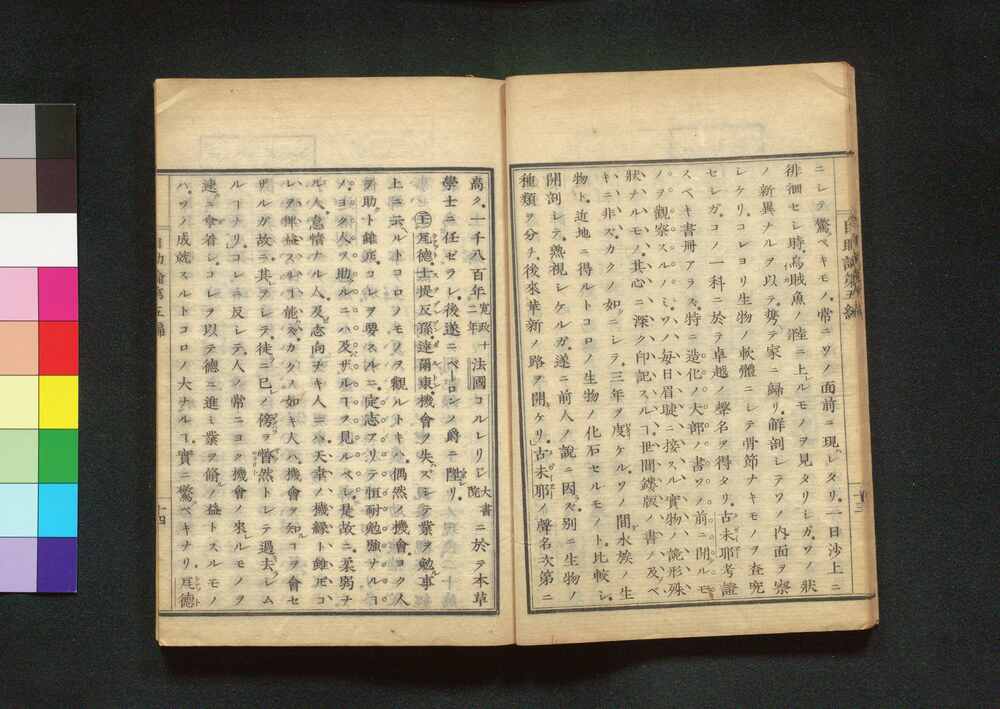 ニシテ驚ベキモノ、常ニソノ面前ニ現レタリ。一日沙上ニ
徘徊セシ時、烏賊魚ノ陸ニ上ルモノヲ見タリシガ、ソノ狀
ノ新異ナルヲ以テ、携テ家ニ歸リ、解剖シテソノ內面ヲ察
シケリ。コレヨリ生物ノ軟體ニシテ骨節ナキモノヲ査究
セシガ、コノ一科ニ於テ卓越ノ聲名ヲ得タリ。古未耶考證
スベキ書冊アラズ、特ニ造化ノ大部ノ書ソノ前ニ開ルモ
ノヲ觀察スルノミ、ソノ毎日眉睫ニ接スル實物ノ詭形殊
狀ナルモノ、其心ニ深ク印記スルヿ世間鏤版ノ書ノ及ベ
キニ非ズ、カクノ如ニシテ、三年ヲ度ケルソノ間、水族ノ生
物ト、近地ニ得ルトコロノ生物ノ化石セルモノト、比較シ、
開剖シテ、熟視シケルガ、遂ニ前人ノ說ニ因ズ、別ニ生物ノ
種類ヲ分チ、後來華新ノ路ヲ開ケリ、古未耶ノ聲名次第ニ
高ク、一千八百年 寬政十二年 法國コルレリジ 大書院 ニ於テ本草
學士ニ任ゼラレ、後遂ニベーロンノ爵ニ陞リ
瓦德士提反孫達爾東、機會ヲ失ズシテ業ヲ勉事
上ニ云ルトコロノモノヲ觀ルトキハ、偶然ノ機會ヨク人
ヲ助ト雖モ、コレヲ要スルニ、定志アリテ恒耐勉強ナルヿ
ノ、ヨク人ヲ助ルニハ及ザルヿヲ見ルベシ、是故ニ柔弱ナ
ル人怠惰ナル人及志向ナキ人ニハ、天幸ノ機緣ト雖モ、コ
レヲ裨益スルヿ能ズ、カクノ如キ人ハ、機會ヲ知コヲ會セ
ザルガ故ニ、其ヲシテ徒ニ已ノ傍ヲ瞥然トシテ過去シム
ルーナリ、コレニ反シテ、人ノ常ニヨク機會ノ來ルモノヲ
速ニ拿着シ、コレヲ以テ德ニ進ミ業ヲ脩ノ益トスルモノ
ハ、ソノ成就スルトコロノ大ナルヿ、實ニ驚ベキナリ、瓦德
十四